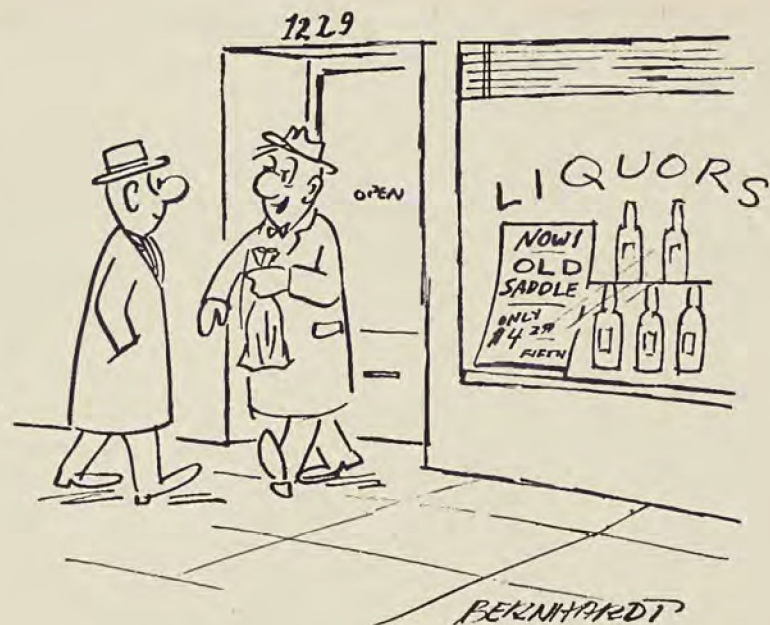 1229
OPEN
LIQUORS
NOW!
OLD
SADDLE
ONLY
$4 29
FIFTH
BERNHARDT